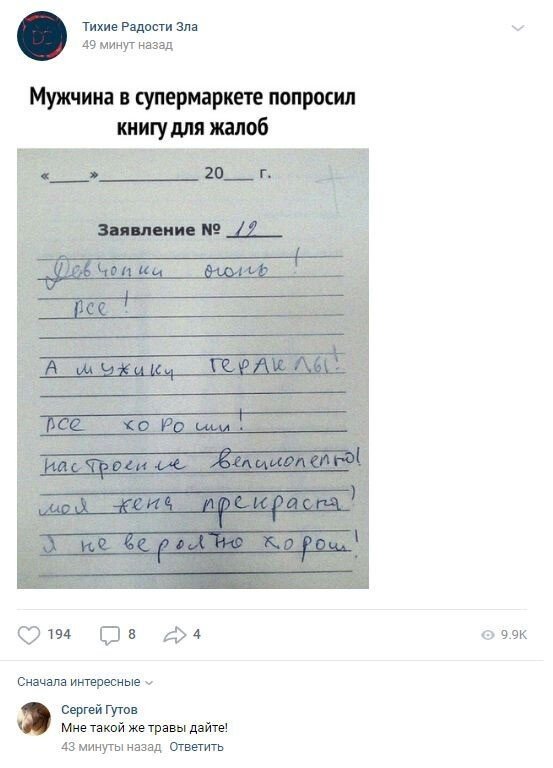 Тихие Радости Зла
49 минут назад
Мужчина в супермаркете попросил
книгу для жалоб
«___»__________ 20___ г.
Заявление № 19
Девчонки огонь !
все !
А мужики ГЕРАКЛЫ!
все хороши!
настроение великолепно!
моя жена прекрасна)
Я не вероятно хорош!
194 8 4 9.9K
Сначала интересные
Сергей Гутов
Мне такой же травы дайте!
43 минуты назад Ответить